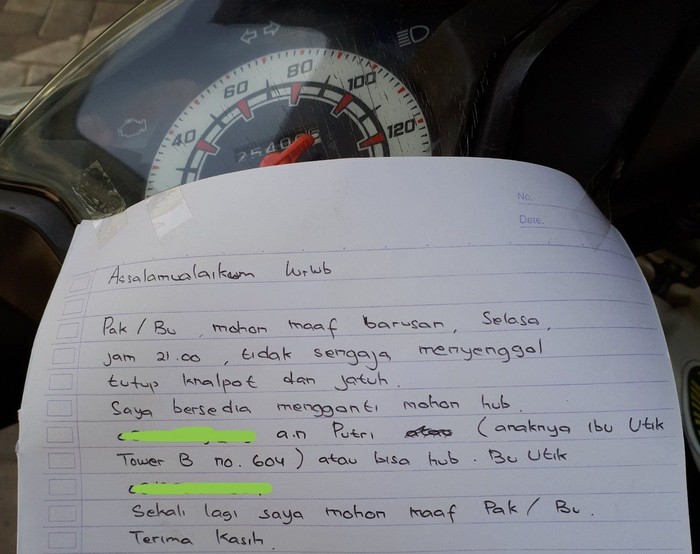 60
80
100
40
120
No.
Date.
Assalamualaikum Wrwb
Pak / Bu, mohon maaf barusan, Selasa,
jam 21.00, tidak sengaja menyenggol
tutup knalpot dan jatuh.
Saya bersedia mengganti mohon hub.
a.n Putri (anaknya Ibu Utik
Tower B no. 604) atau bisa hub. Bu Utik
Sekali lagi saya mohon maaf Pak / Bu.
Terima Kasih.